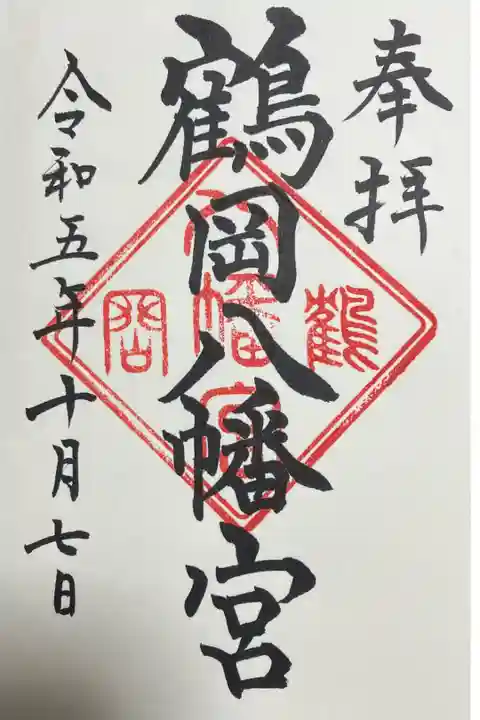 奉拝
鶴岡八幡宮
鶴
八幡宮
岡
令和五年十月七日